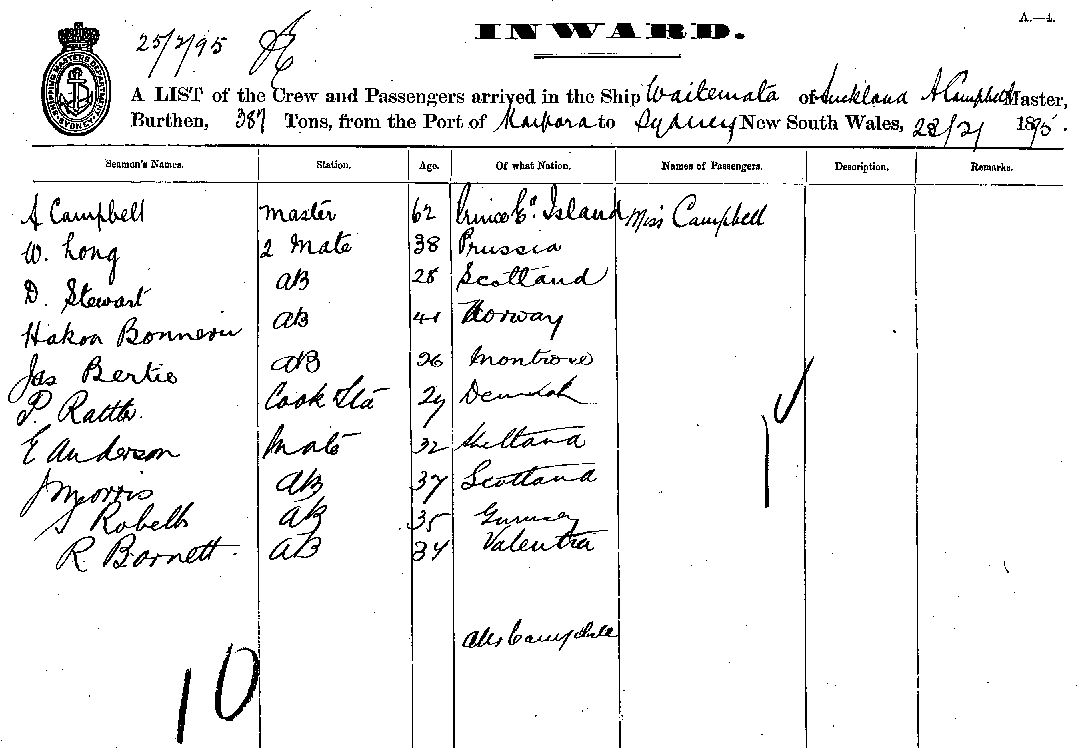 A.—4.
25/2/95
INWARD.
SHIPPING MASTERS DEPARTMENT SYDNEY
A LIST of the Crew and Passengers arrived in the Ship Waitemata of Auckland A Campbell Master,
Burthen, 387 Tons, from the Port of Kaipara to Sydney New South Wales, 1895.
Seamen's Names. Station. Age. Of what Nation. Names of Passengers. Description. Remarks.
A Campbell master 62 Prince Ed. Island Miss Campbell
W. Long 2 Mate 38 Prussia
D. Stewart AB 28 Scotland
Hakon AB 41 Norway
Jas Bertie AB 26 Montrose
P. Cook & Std 29
E Anderson Mate 32 Shetland
J Morris AB 37 Scotland
S AB 35 Guernsey
R Barnett AB 34 Valentia
Alex Campbell
10
1